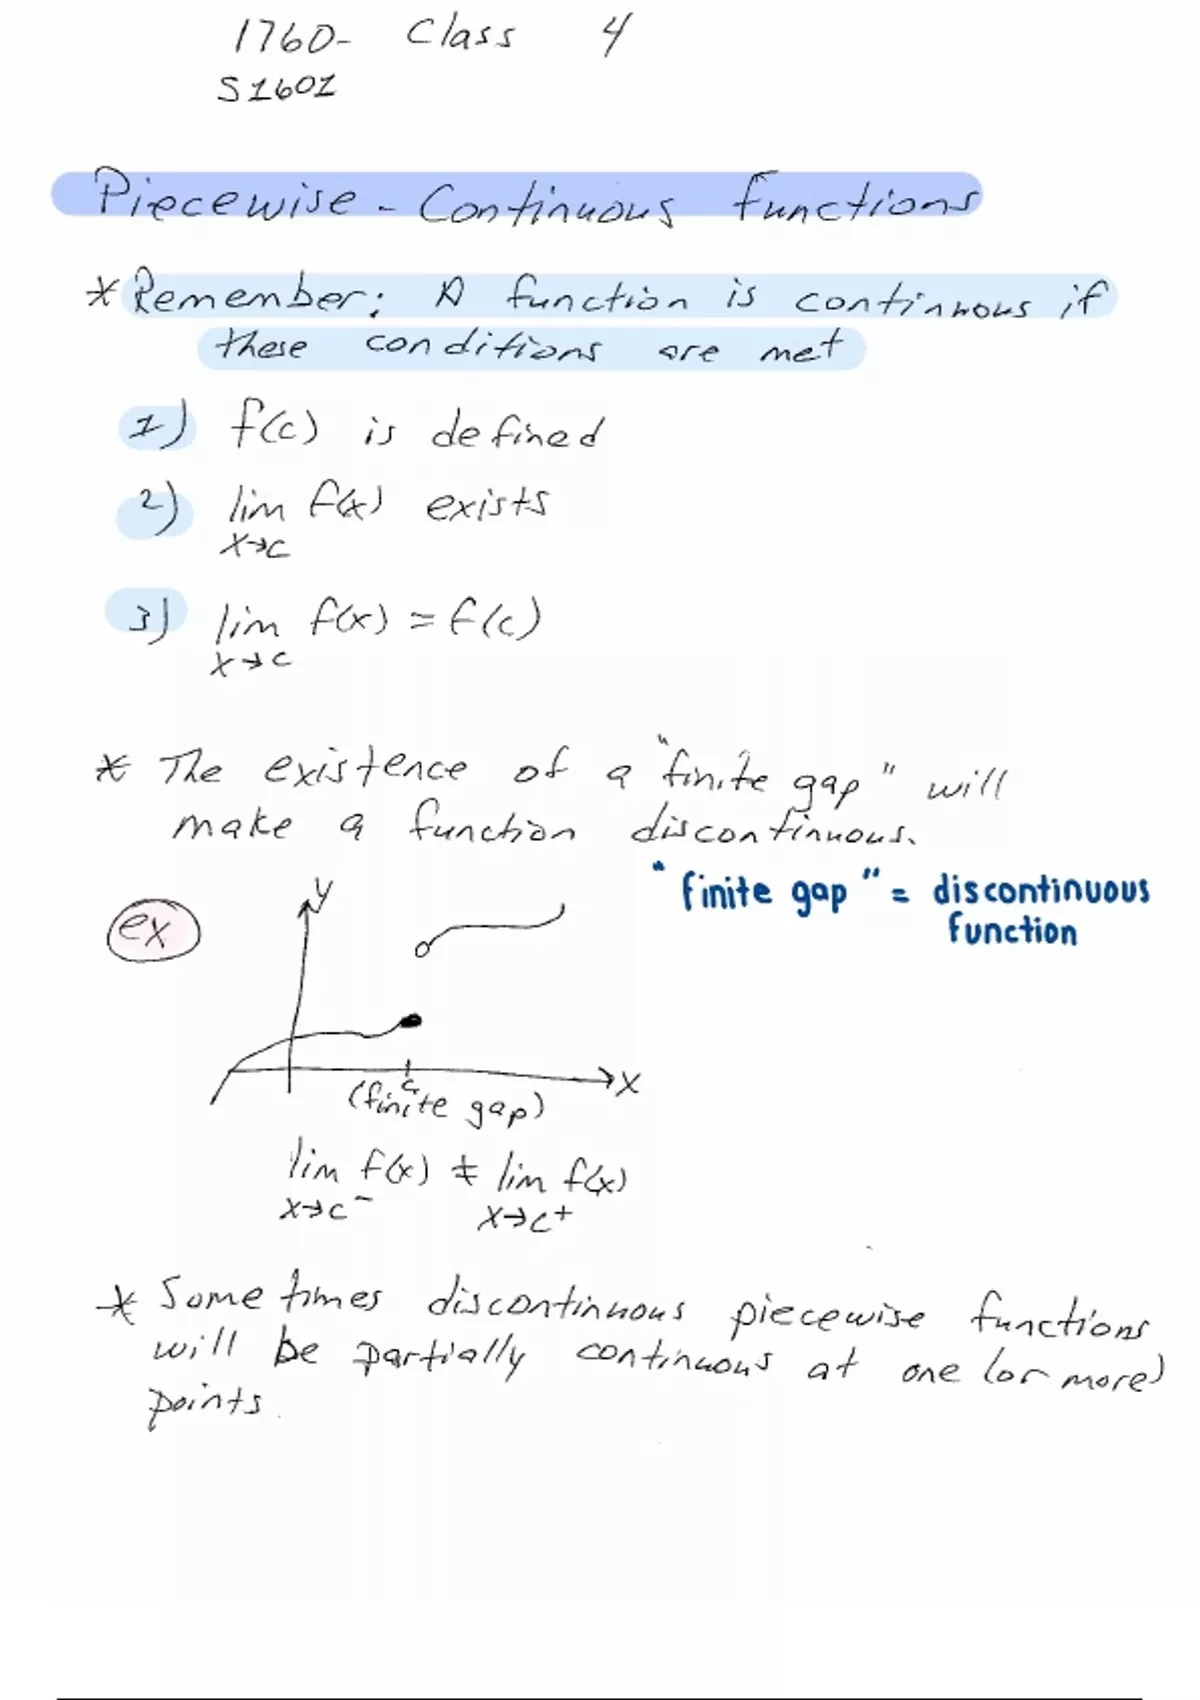 1760- Class 4
S1601
Piecewise-Continuous Functions
* Remember: A function is continuous if
these conditions are met
1) f(c) is defined
2) lim f(x) exists
x→c
3) lim f(x) = f(c)
x→c
* The existence of a "finite gap" will
make a function discontinuous.
"finite gap" = discontinuous
function
ex
y
c
x
(finite gap)
lim f(x) ≠ lim f(x)
x→c⁻ x→c⁺
* Sometimes discontinuous piecewise functions
will be partially continuous at one (or more)
points.